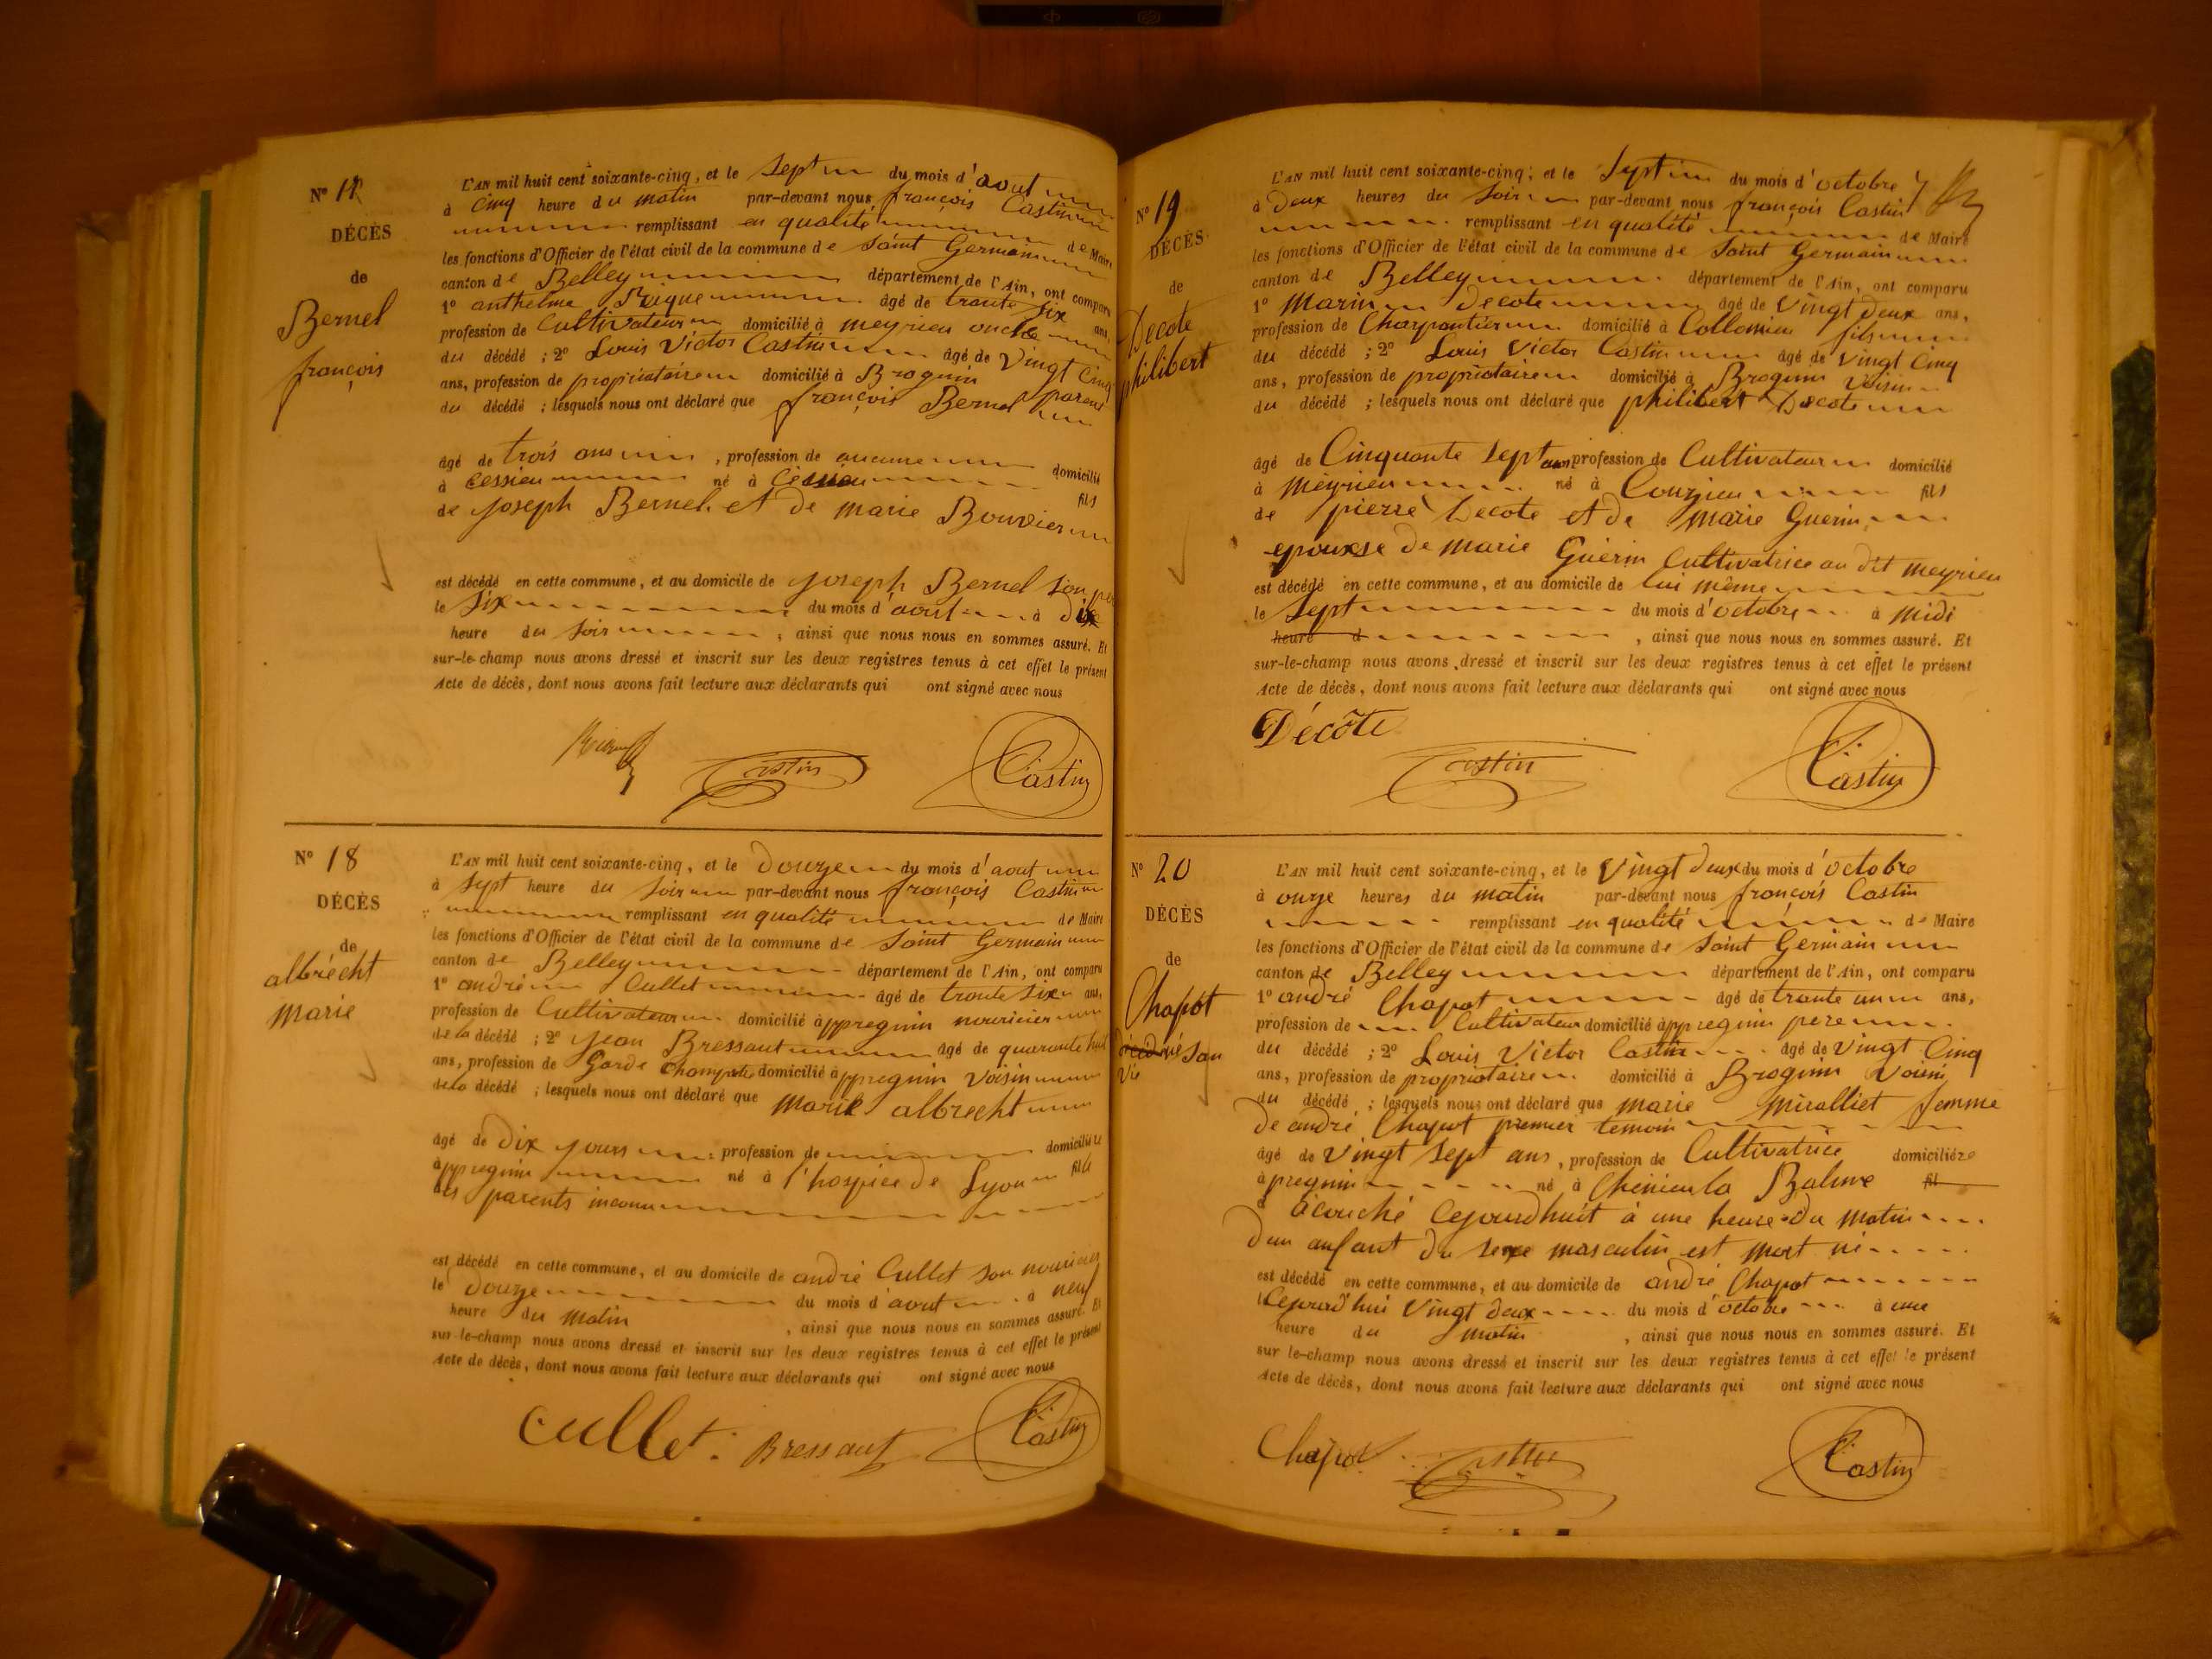 N° 17
DÉCÈS
de
Bernel
françois
L'AN mil huit cent soixante-cinq, et le Sept du mois d'aout
à Cinq heure du matin par-devant nous françois Castin
remplissant en qualité de Maire
les fonctions d'Officier de l'état civil de la commune de Saint Germain
canton de Belley département de l'Ain, ont comparu
1° anthelme âgé de trante Six ans,
profession de Cultivateur domicilié à meyrieu
du décédé ; 2° Louis Victor Castin âgé de Vingt Cinq
ans, profession de propriataire domicilié à Brognin parent
du décédé ; lesquels nous ont déclaré que françois Bernel
âgé de trois ans , profession de aucune domicilié
à Cessieu né à Cessieu fils
de joseph Bernel et de marie Bouvier
est décédé en cette commune, et au domicile de joseph Bernel Son père
le Six du mois d'aout à dix
heure du Soir , ainsi que nous nous en sommes assuré. Et
sur-le-champ nous avons dressé et inscrit sur les deux registres tenus à cet effet le présent
Acte de décès, dont nous avons fait lecture aux déclarants qui ont signé avec nous
Castin Castin
N° 18
DÉCÈS
de
albrecht
Marie
L'AN mil huit cent soixante-cinq, et le Douze du mois d'aout
à Sept heure du Soir par-devant nous françois Castin
remplissant en qualité de Maire
les fonctions d'Officier de l'état civil de la commune de Saint Germain
canton de Belley département de l'Ain, ont comparu
1° andré Cullet âgé de trante Six ans,
profession de Cultivateur domicilié à ppregnin nouricier
de la décédé ; 2° Jean Bressaut âgé de quarante huit
ans, profession de Garde Champetre domicilié à ppregnin Voisin
de la décédé ; lesquels nous ont déclaré que Marie albrecht
âgé de Dix jours , profession de domiciliée
à ppregnin né à l'hospice de Lyon fille
des parents inconnu
est décédé en cette commune, et au domicile de andré Cullet Son nouricier
le douze du mois d'aout à neuf
heure du Matin , ainsi que nous nous en sommes assuré. Et
sur-le-champ nous avons dressé et inscrit sur les deux registres tenus à cet effet le présent
Acte de décès, dont nous avons fait lecture aux déclarants qui ont signé avec nous
Cullet Bressaut Castin
N° 19
DÉCÈS
de
Decote
philibert
L'AN mil huit cent soixante-cinq, et le Sept du mois d'octobre
à Deux heures du Soir par-devant nous françois Castin
remplissant en qualité de Maire
les fonctions d'Officier de l'état civil de la commune de Saint Germain
canton de Belley département de l'Ain, ont comparu
1° Marin Decote âgé de Vingt Deux ans,
profession de Charpantier domicilié à Collomieu fils
du décédé ; 2° Louis Victor Castin âgé de Vingt Cinq
ans, profession de propriataire domicilié à Brognin Voisin
du décédé ; lesquels nous ont déclaré que philibert Decote
âgé de Cinquante Sept ans profession de Cultivateur domicilié
à Meyrieu né à Couzieu fils
de pierre Decote et de Marie Guerin
epouxse de Marie Guérin Cultivatrice au dit meyrieu
est décédé en cette commune, et au domicile de lui même
le Sept du mois d'octobre à Midi
heure d , ainsi que nous nous en sommes assuré. Et
sur-le-champ nous avons dressé et inscrit sur les deux registres tenus à cet effet le présent
Acte de décès, dont nous avons fait lecture aux déclarants qui ont signé avec nous
Décôte Castin Castin
N° 20
DÉCÈS
de
Chapot
San
Vie
L'AN mil huit cent soixante-cinq, et le Vingt deux du mois d'octobre
à onze heures du matin par-devant nous françois Castin
remplissant en qualité de Maire
les fonctions d'Officier de l'état civil de la commune de Saint Germain
canton de Belley département de l'Ain, ont comparu
1° andré Chapot âgé de trante un ans,
profession de Cultivateur domicilié à ppregnin pere
du décédé ; 2° Louis Victor Castin âgé de Vingt Cinq
ans, profession de propriataire domicilié à Brognin Voisin
du décédé ; lesquels nous ont déclaré que marie Miralliet femme
De andré Chapot premier temoin
âgé de Vingt Sept ans, profession de Cultivatrice domiciliée
à pregnin né à Chemieu la Balme fil
a acouché Cejourdhuit à une heure Du Matin
Dun anfant du sexe masculin est mort né
est décédé en cette commune, et au domicile de andré Chapot
Cejourd'hui Vingt deux du mois d'octobre à une
heure du matin , ainsi que nous nous en sommes assuré. Et
sur le-champ nous avons dressé et inscrit sur les deux registres tenus à cet effet le présent
Acte de décès, dont nous avons fait lecture aux déclarants qui ont signé avec nous
Chapot Castin Castin